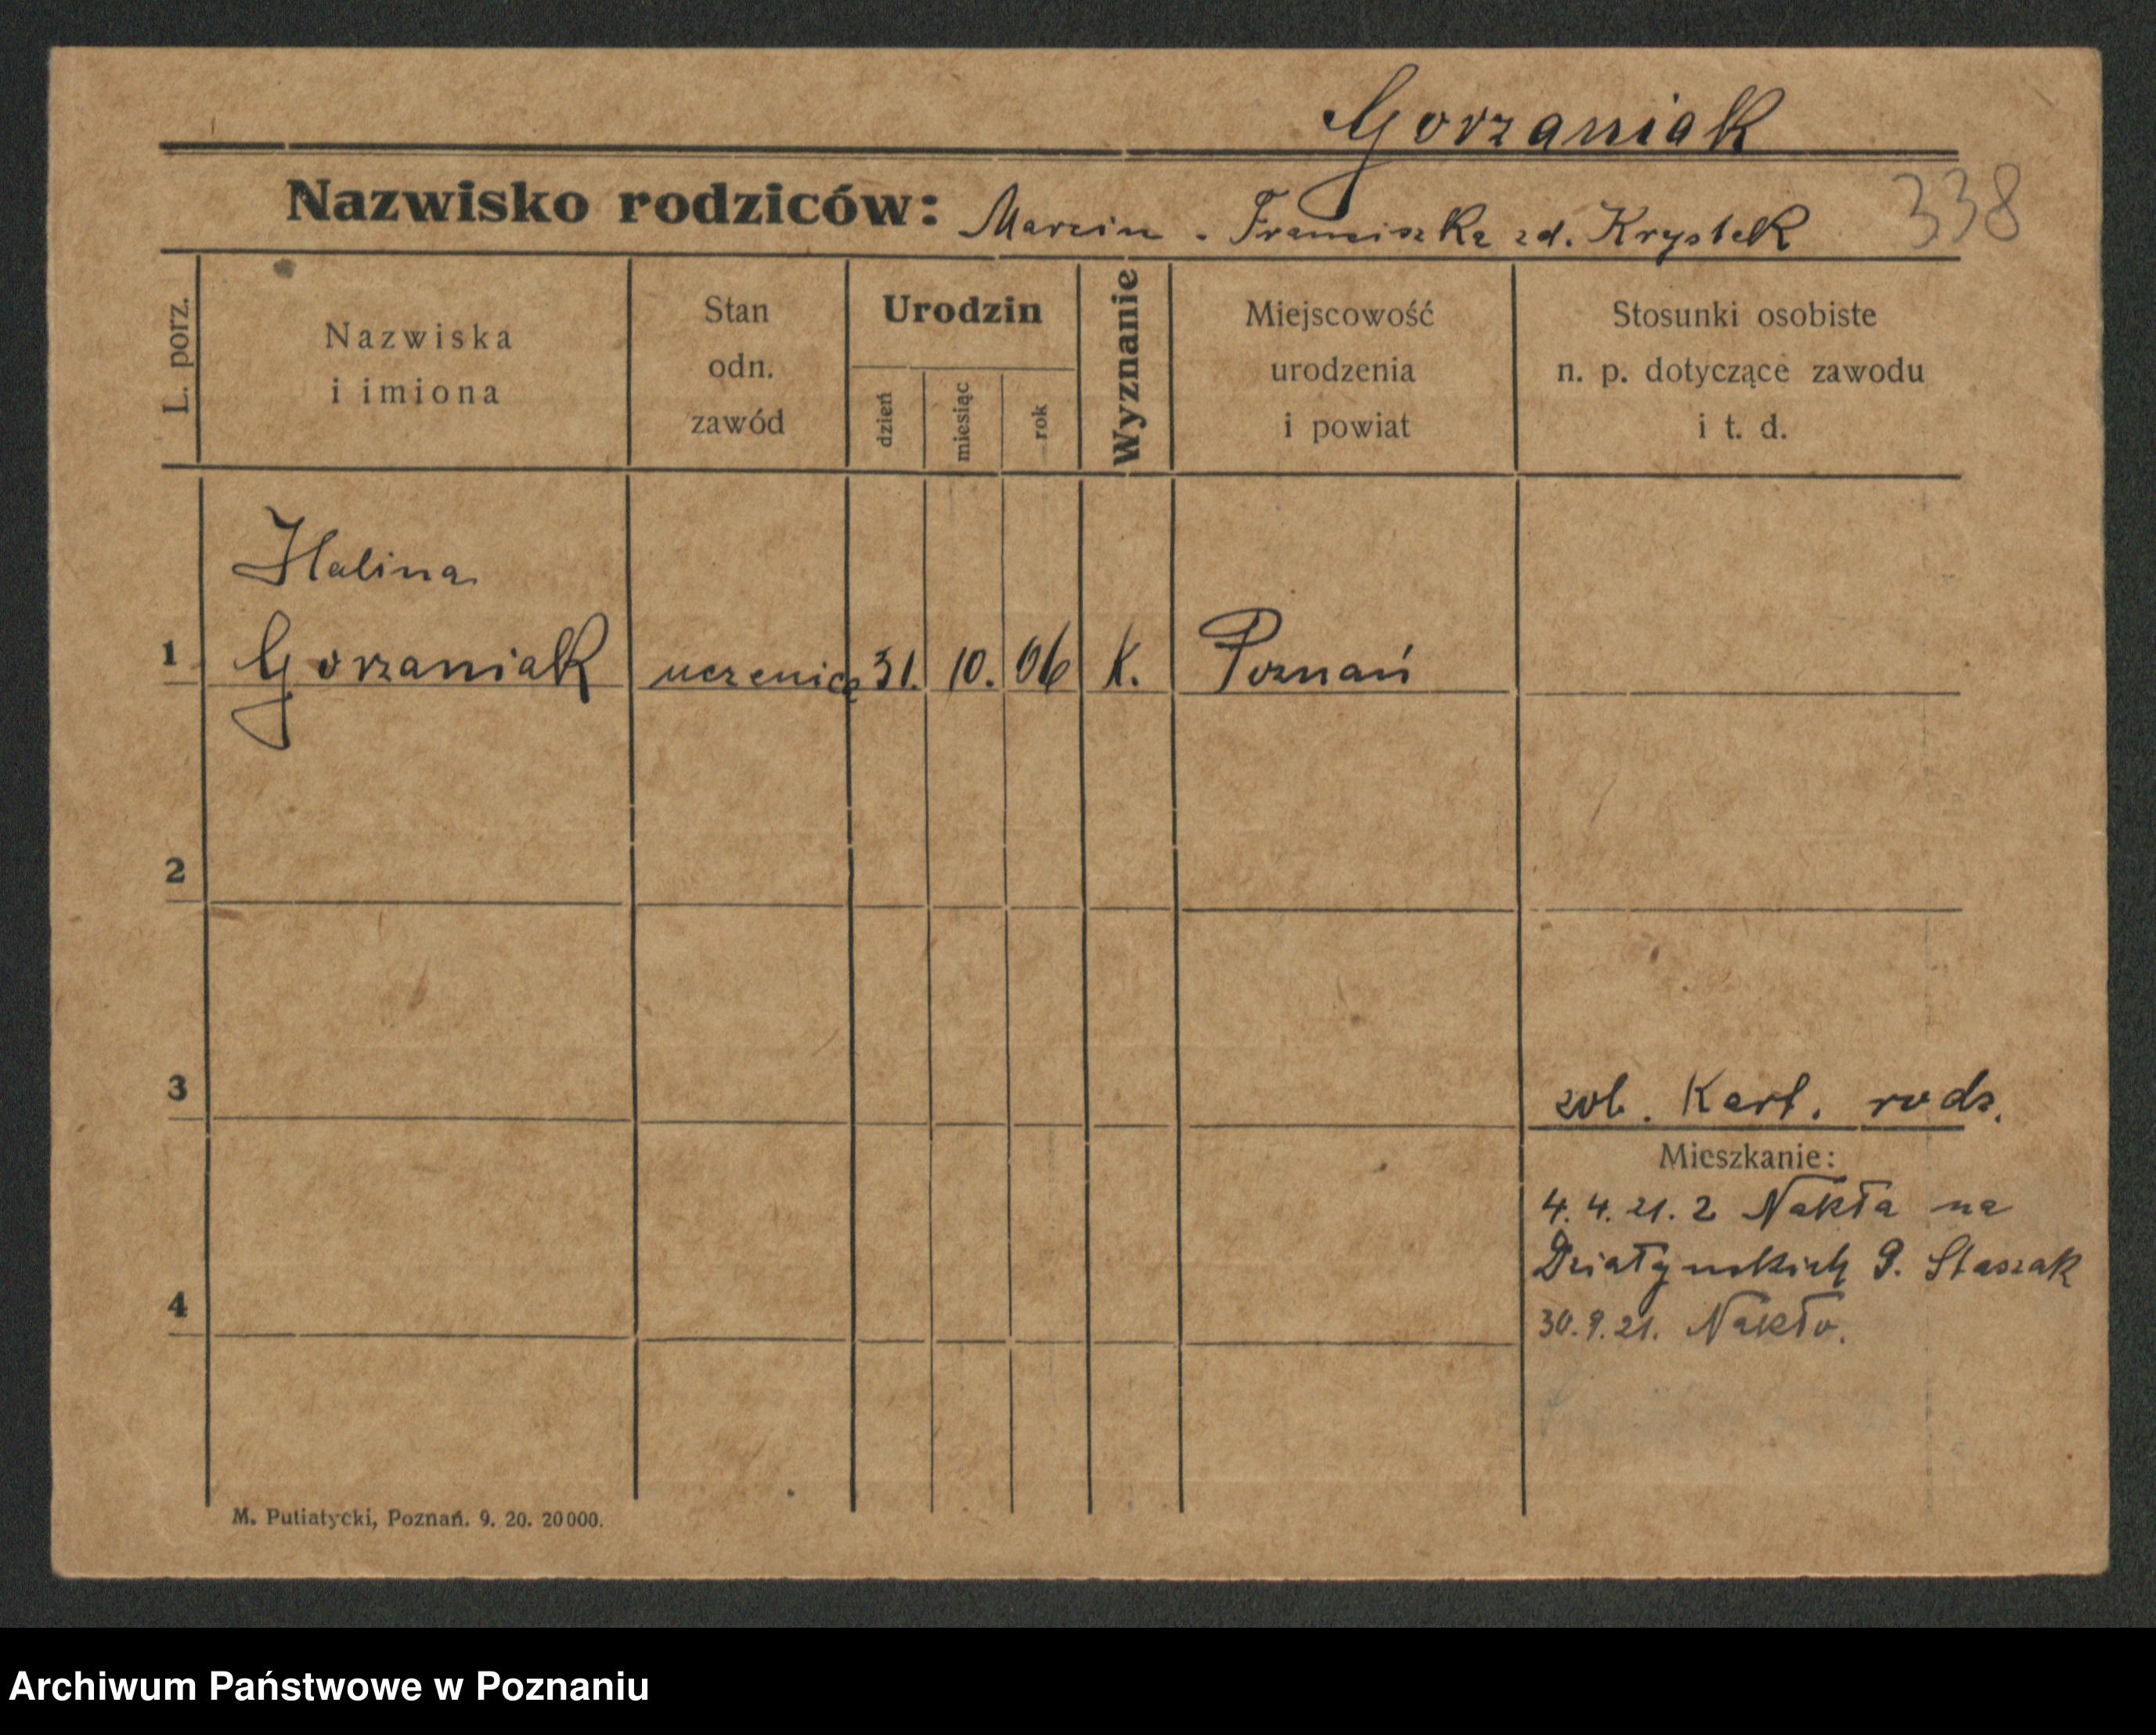 Gorzaniak
Nazwisko rodziców: Marcin - Franciszka zd. Krystek
338
L. porz.
Nazwiska
i imiona
Stan
odn.
zawód
Urodzin
dzień
miesiąc
rok
Wyznanie
Miejscowość
urodzenia
i powiat
Stosunki osobiste
n. p. dotyczące zawodu
i t. d.
Halina
1 Gorzaniak uczenica 31. 10. 06 K. Poznań
2
3
zob. Kart. rodz.
Mieszkanie:
4. 4. 21. z Nakła na
Działyńskich 9. Staszak
4
30. 9. 21. Nakło.
M. Putiatycki, Poznań. 9. 20. 20000.
Archiwum Państwowe w Poznaniu